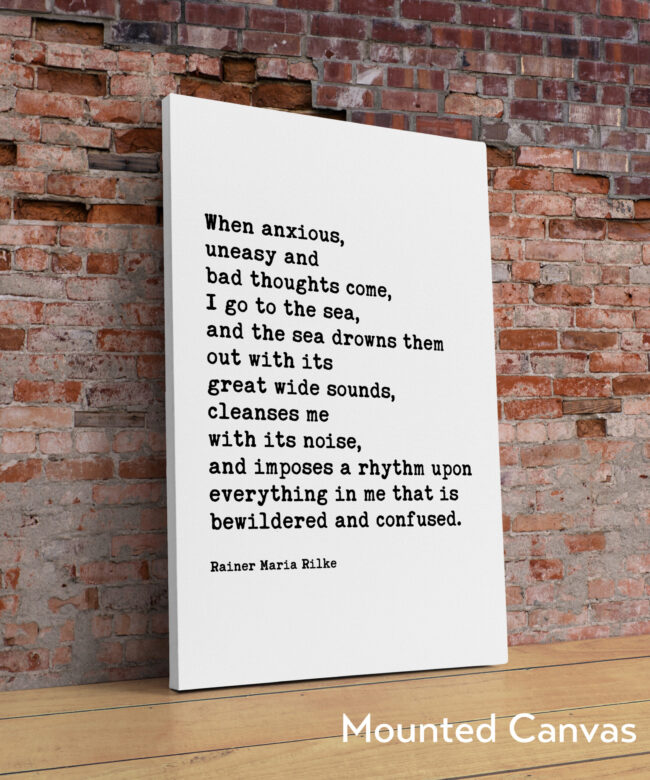 When anxious,
uneasy and
bad thoughts come,
I go to the sea,
and the sea drowns them
out with its
great wide sounds,
cleanses me
with its noise,
and imposes a rhythm upon
everything in me that is
bewildered and confused.
Rainer Maria Rilke
Mounted Canvas